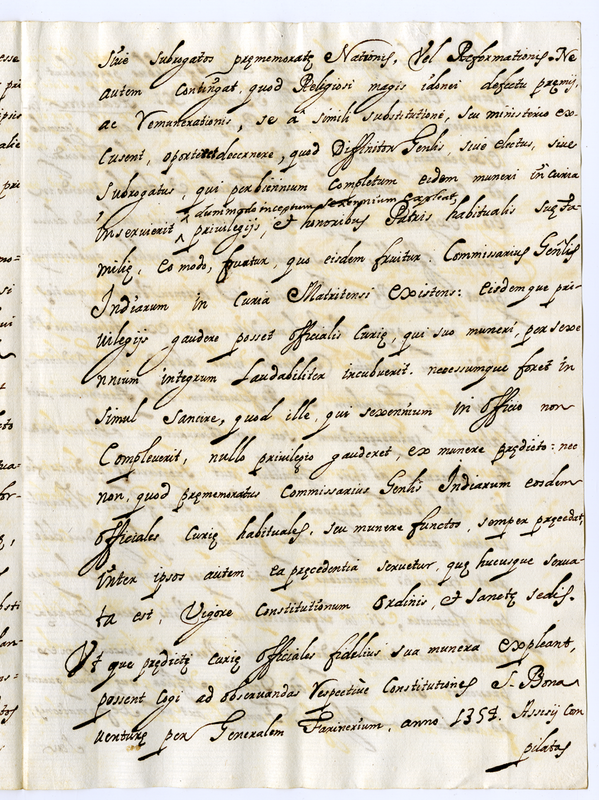 siue subrogatos pręmemoratę Nationis, Vel Reformationis. Ne
autem Contingat, quod Religiosi magis idonei defectu pręmij,
ac Remunerationis, se à simili substitutione, seu ministerio ex-
Cusent, oportet decernere, quod Diffinitor Genlis, siue electus, siue
subrogatus, qui per biennium Completum eidem muneri in Curia
dummodo inceptum sexennium expleat,
inseruierit privilegijs, et honoribus Patris habitualis suę Fa-
milię, eo modo, fruatur, quo eisdem fruitur Commissarius Genlis
Indiarum in Curia Matritensi existens: eisdemque pri-
uilegijs gaudere posset officialis Curię, qui suo muneri, per sexe
nnium integrum Laudabiliter incubuerit. necessumque foret in
simul sancire, quod ille, qui sexennium in officio non
Compleuerit, nullo privilegio gauderet, ex munere prędicto: nec
non, quod pręmemoratus Commissarius Genlis Indiarum eosdem
officiales Curię habituales, seu munere functos, semper pręcedat,
inter ipsos autem ea pręcedentia seruetur, quę hucusque serua-
ta est, Vigore Constitutionum Ordinis, et sanctę sedis.
Vt que prędictę Curię officiales fidelius sua munera expleant,
possent Cogi ad observandas respectiue Constitutiones S. Bona
venturę per Generalem Farinerium, anno 1354. Assisij Com
pilatas